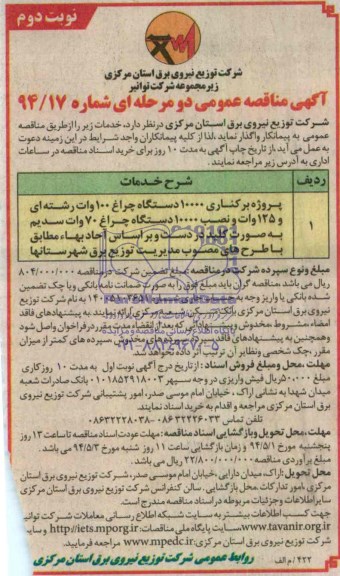 نوبت دوم
شرکت توزیع نیروی برق استان مرکزی
زیرمجموعه شرکت توانیر
آگهی مناقصه عمومی دو مرحله ای شماره ۹۴/۱۷
شرکت توزیع نیروی برق استان مرکزی درنظر دارد، خدمات زیر را از طریق مناقصه
عمومی به پیمانکار واگذار نماید. لذا از کلیه پیمانکاران واجد شرایط در این زمینه دعوت
به عمل می آید، از تاریخ چاپ آگهی به مدت ۱۰ روز برای خرید اسناد مناقصه در ساعات
اداری به آدرس زیر مراجعه نمایند.
ردیف شرح خدمات
۱ پروژه برکناری ۱۰۰۰۰ دستگاه چراغ ۱۰۰ وات رشته ای
و ۱۲۵ وات و نصب ۱۰۰۰۰ دستگاه چراغ ۷۰ وات سدیم
به صورت کلید در دست و بر اساس آحاد بهاء مطابق
با طرح های مصوب مدیریت توزیع برق شهرستانها
مبلغ و نوع سپرده شرکت در مناقصه: مبلغ تضمین شرکت در مناقصه ۸۰۴/۰۰۰/۰۰۰
ریال می باشد. مناقصه گران باید مبلغ فوق را به صورت ضمانت نامه بانکی و یا چک تضمین
شده بانکی یا واریز وجه به حساب به نام شرکت توزیع
نیروی برق استان مرکزی ارائه نمایند. به پیشنهادهای فاقد
امضاء، مشروط، مخدوش و پیشنهاداتی که بعد از انقضاء مدت مقرر در فراخوان واصل شود
و همچنین به پیشنهادهای فاقد سپرده، سپرده های مخدوش، سپرده های کمتر از میزان
مقرر، چک شخصی و نظایر آن ترتیب اثر داده نخواهد شد.
مهلت، محل و مبلغ فروش اسناد: از تاریخ درج آگهی نوبت اول به مدت ۱۰ روز کاری
مبلغ ۵۰۰۰۰۰ ریال فیش واریزی در وجه سپهر ۰۱۰۱۸۵۳۹۱۸۰۰۳ بانک صادرات شعبه
میدان شهدا به نشانی اراک، خیابان امام موسی صدر، امور پشتیبانی شرکت توزیع نیروی
برق استان مرکزی مراجعه و اقدام به خرید اسناد نمایند.
تلفن تماس ۰۸۶۳۲۲۲۶۰۳۳-۰۸۶۳۲۲۲۸۰۳۸
مهلت، محل تحویل و بازگشایی اسناد مناقصه: مهلت عودت اسناد مناقصه تا ساعت ۱۳ روز
پنجشنبه مورخ ۹۴/۵/۱ و زمان بازگشایی ساعت ۱۱ روز شنبه مورخ ۹۴/۵/۳ می باشد.
مبلغ برآوردی مناقصه ۲۲/۸۰۰/۰۰۰/۰۰۰ ریال می باشد.
محل تحویل: اراک، میدان دارایی، خیابان امام موسی صدر، شرکت توزیع نیروی برق استان
مرکزی، امور تدارکات. محل بازگشایی: سالن کنفرانس شرکت توزیع نیروی برق استان مرکزی
سایر اطلاعات و جزئیات مربوطه در اسناد مناقصه مندرج است.
جهت کسب اطلاعات بیشتر به سایت شبکه اطلاع رسانی معاملات شرکت توانیر
www.tavanir.org.ir، سایت پایگاه ملی مناقصات: http://iets.mporg.ir و سایت
شرکت توزیع نیروی برق استان مرکزی: www.mpedc.ir مراجعه فرمایید.
۴۲۲ / م الف روابط عمومی شرکت توزیع نیروی برق استان مرکزی